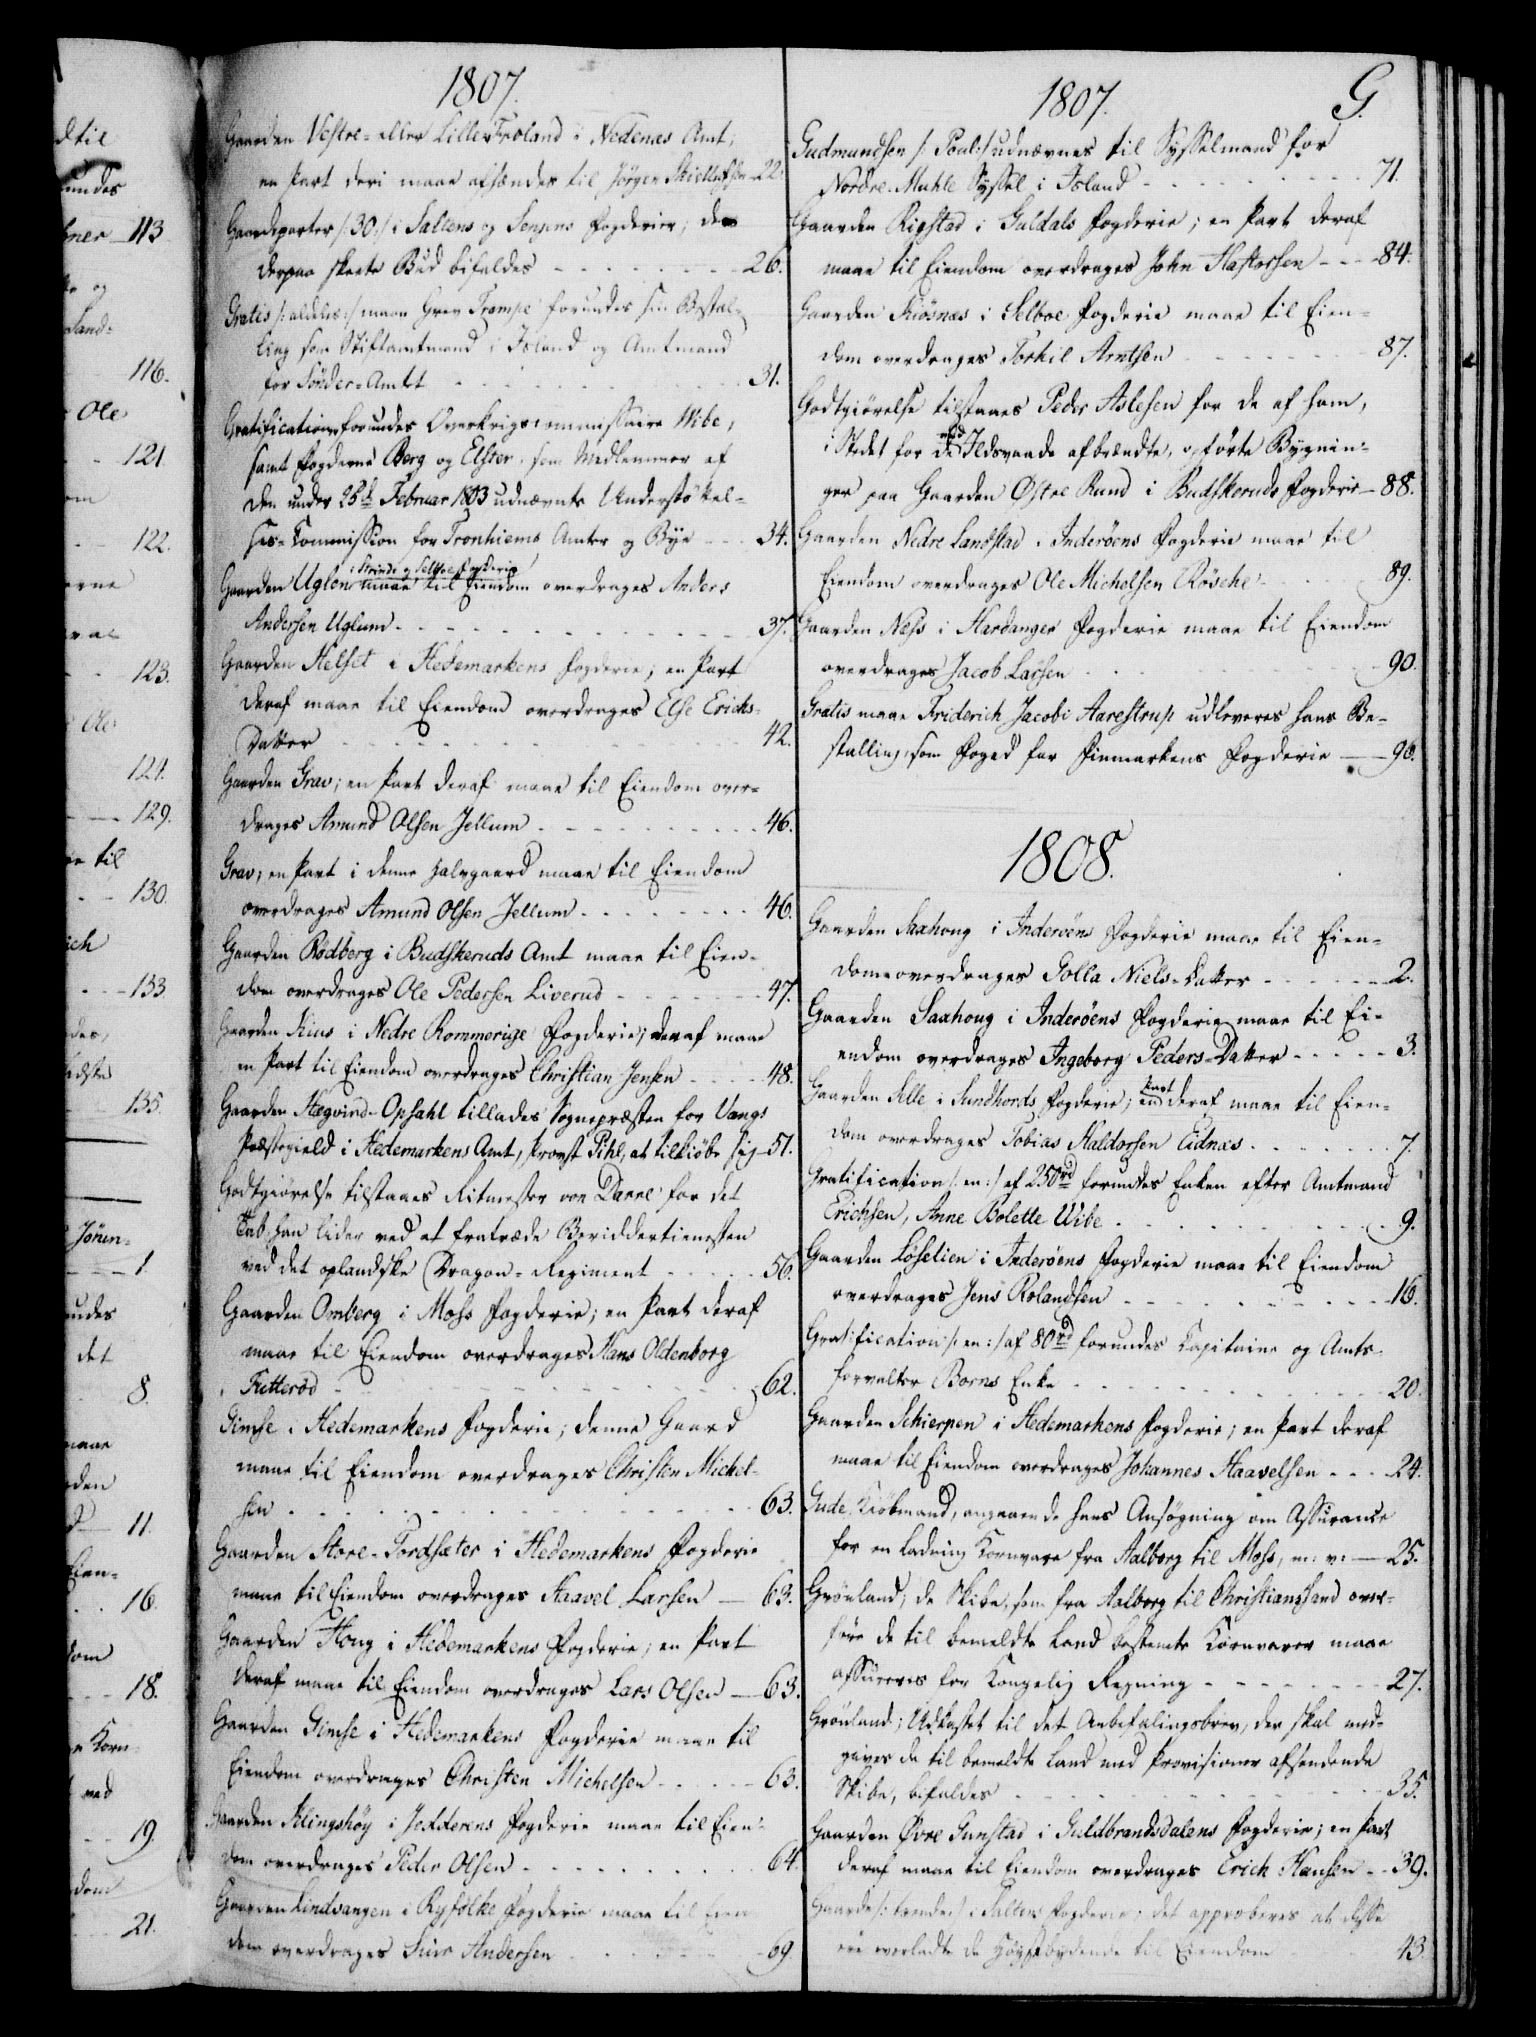 1807.
Gaarden Vestre- eller Lille Froland i Nedenæs Amt;
en Part deri maae afhændes til Jörgen Skiellefsön 22.
Gaardeparter /:30:/ i Saltens og Senjens Fogderier; de
derpaa skeete Bud bifaldes 26.
Gratis /:aldeles:/ maae Grev Trampe forundes sin Bestal-
ling som Stiftamtmand i Island og Amtmand
for Sönder-Amtet 31.
Gratification forundes Overkrigscommissaire Wibe,
samt Fogderne Berg og Elster som Medlemmer af
den under 25de Februar 1803 udnævnte Undersökel-
ses-Kommission for Tronhiems Amter og Bye 34.
Gaarden Uglen i Strinde og Selboe Fogderie maae til Eiendom overdrages Anders
Andersen Uglum 37.
Gaarden Helset i Hedemarkens Fogderie; en Part
deraf maae til Eiendom overdrages Else Erichs-
Datter 42.
Gaarden Grav; en Part deraf maae til Eiendom over-
drages Amund Olsen Jellum 46.
Grav; en Part i denne Halvgaard maae til Eiendom
overdrages Amund Olsen Jellum 46.
Gaarden Rödberg i Budskeruds Amt maae til Eien-
dom overdrages Ole Pedersen Liverud 47.
Gaarden Kius i Nedre Rommerige Fogderie; deraf maae
en Part til Eiendom overdrages Christian Jensen 48.
Gaarden Hægvind-Opsahl tillades Sognepræsten for Vangs
Præstegield i Hedemarkens Amt, Provst Pihl, at tilkiöbe sig 51.
Godtgiörelse tilstaaes Ritmester von Danne for det
Tab, han lider ved at fratræde Beriddertienesten
ved det oplandske Dragon-Regiment 56.
Gaarden Omberg i Moss Fogderie; en Part deraf
maae til Eiendom overdrages Hans Oldenborg
Futteröd 62.
Gimse i Hedemarkens Fogderie; denne Gaard
maae til Eiendom overdrages Christen Michel-
sen 63.
Gaarden Store-Tordsæter i Hedemarkens Fogderie
maae til Eiendom overdrages Haavel Larsen 63.
Gaarden Houg i Hedemarkens Fogderie; en Part
deraf maae til Eiendom overdrages Lars Olsen 63.
Gaarden Gimse i Hedemarkens Fogderie maae til
Eiendom overdrages Christen Michelsen 63.
Gaarden Klingshöy i Jedderens Fogderie maae til Eien-
dom overdrages Peder Olsen 64.
Gaarden Lindvangen i Ryfölke Fogderie maae til Eien
dom overdrages Siur Andersen 69.
1807. G.
Gudmundsen /:Poul:/ udnævnes til Sysselmand for
Nordre-Muhle Syssel i Island 71.
Gaarden Rigstad i Guldals Fogderie; en Part deraf
maae til Eiendom overdrages John Hastorsen 84.
Gaarden Kiösnæs i Selboe Fogderie maae til Eien-
dom overdrages Torkil Arntsen 87.
Godtgiörelse tilstaaes Peder Aslesen for de af ham,
i Stedet for de ved Ildsvaade afbrændte, opförte Bygnin-
ger paa Gaarden Østre Rund i Budskeruds Fogderie 88.
Gaarden Nedre Landstad i Inderöens Fogderie maae til
Eiendom overdrages Ole Michelsen Rösche 89.
Gaarden Ness i Hardanger Fogderie maae til Eiendom
overdrages Jacob Larsen 90.
Gratis maae Friderich Jacobi Aarestrup udleveres hans Be-
stalling som Foged for Finmarkens Fogderie 96.
1808.
Gaarden Saxhoug i Inderöens Fogderie maae til Eien-
dom overdrages Golla Niels-Datter 2.
Gaarden Saxhoug i Inderöens Fogderie maae til Ei-
endom overdrages Ingeborg Peders-Datter 3.
Gaarden Selle i Sundhords Fogderie; en Part deraf maae til Eien-
dom overdrages Tobias Haldorsen Eidnæs 7.
Gratification /:en:/ af 250rd forundes Enken efter Amtmand
Erichsen, Anne Bolette Wibe 9.
Gaarden Löselien i Inderöens Fogderie maae til Eiendom
overdrages Jens Rolandsen 16.
Gratification /:en:/ af 80rd forundes Kapitaine og Amts-
forvalter Borns Enke 20.
Gaarden Schierpen i Hedemarkens Fogderie; en Part deraf
maae til Eiendom overdrages Johannes Haavelsen 24.
Gude, Kiöbmand, angaaende hans Ansögning om Assurance
for en Ladning Kornvare fra Aalborg til Moss, m: v: 25.
Grönland; de Skibe, som fra Aalborg til Christianssand over-
före de til bemeldte Land bestemte Kornvarer maae
assureres for Kongelig Regning 27.
Grönland; Udkastet til det Anbefalingsbrev, der skal med-
gives de til bemeldte Land med Provisioner afsendende
Skibe, bifaldes 35.
Gaarden Øvre Sunstad i Guldbrandsdalens Fogderie; en Part
deraf maae til Eiendom overdrages Erich Hansen 39.
Gaarde /:trende:/ i Saltens Fogderie; det approberes at disse
ere overladte de Höystbydende til Eiendom 43.